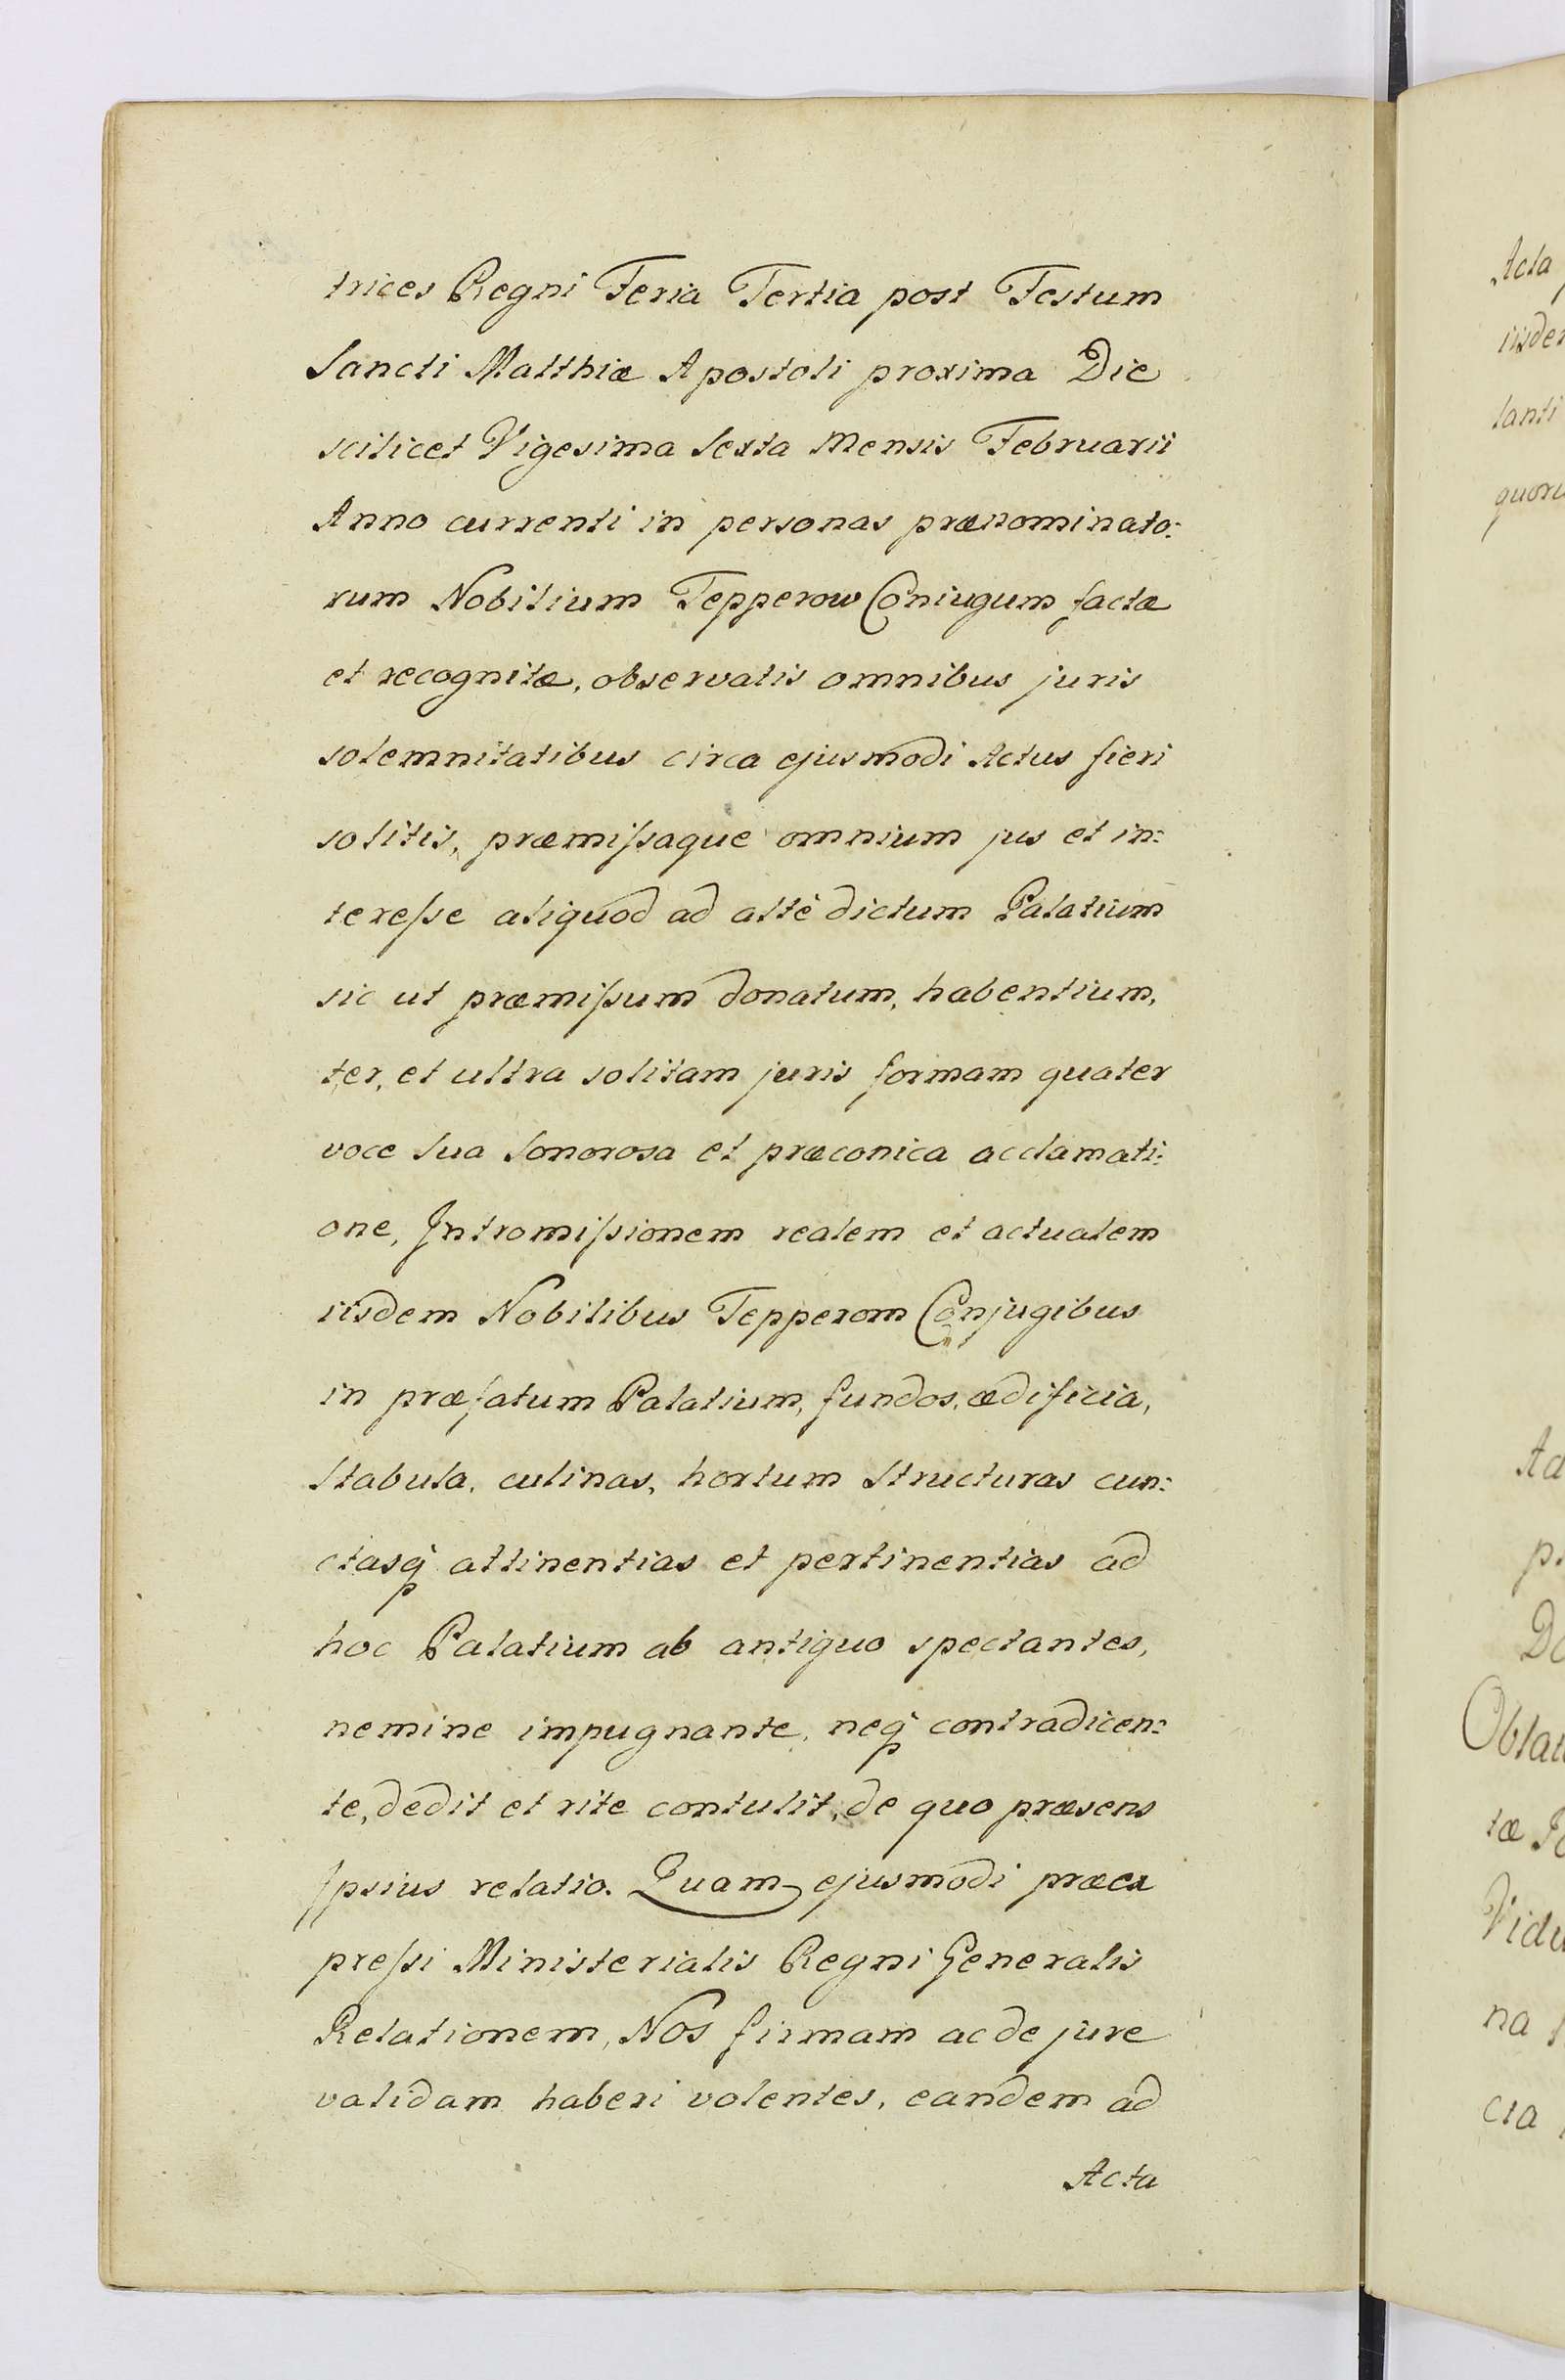 trices Regni Feria Tertia post Festum
Sancti Matthiæ Apostoli proxima Die
scilicet Vigesima Sexta Mensis Februarii
Anno currenti in personas prænominato:
rum Nobilium Tepperow Coniugum factæ
et recognitæ, observatis omnibus juris
solemnitatibus circa ejusmodi Actus fieri
solitis, præmiſsaque omnium jus et in:
tereſse aliquod ad altè dictum Palatium
sic ut præmiſsum donatum, habentium,
ter, et ultra solitam juris formam quater
voce Sua Sonorosa et præconica acclamati:
one, Intromiſsionem realem et actualem
iisdem Nobilibus Tepperom Conjugibus
in præfatum Palatium, fundos, ædificia,
Stabula, culinas, hortum Structuras cun:
ctasq̃ attinentias et pertinentias ad
hoc Palatium ab antiquo spectantes,
nemine impugnante, neq̃ contradicen:
te, dedit et rite contulit, de quo præsens
Ipsius relatio. Quam ejusmodi præex
preſsi Ministerialis Regni Generalis
Relationem, Nos firmam ac de jure
validam haberi volentes, eandem ad
Acta
Acta
iisde
tanti
quoru
Ad
p
Do
Obla
tæ
Vidu
na
cia